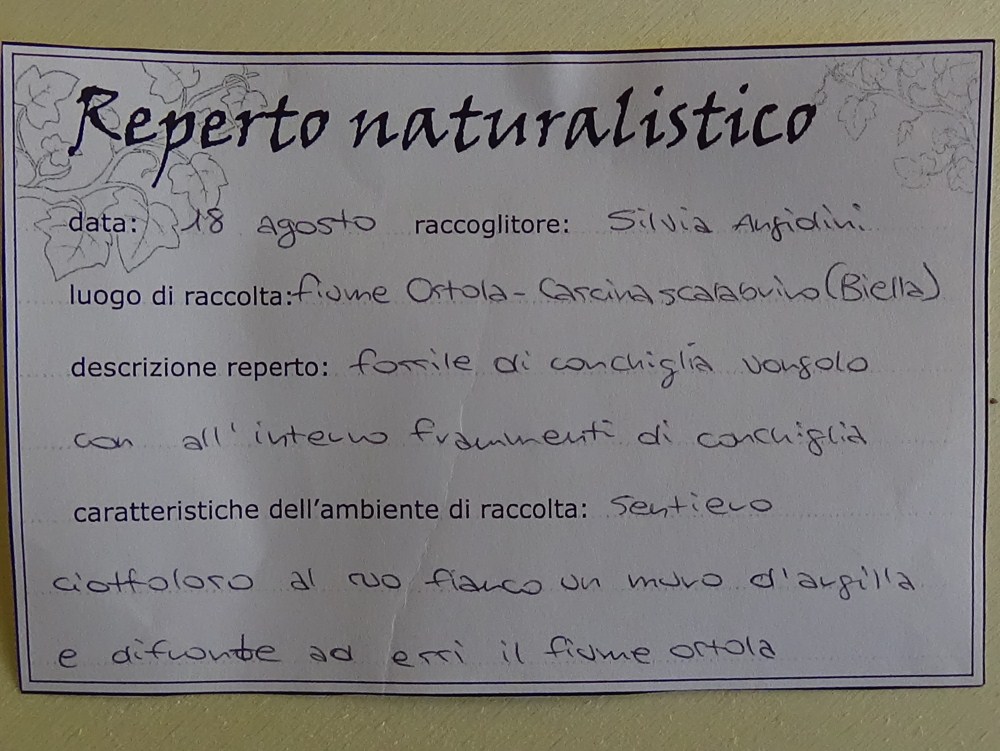 Reperto naturalistico
data: 18 agosto raccoglitore: Silvia Angidini
luogo di raccolta: fiume Ostola - Cascina scarabvino (Biella)
descrizione reperto: fossile di conchiglia vongolo
con all'interno frammenti di conchiglia
caratteristiche dell'ambiente di raccolta: Sentiero
ciottoloso al suo fianco un muro d'argilla
e difronte ad essi il fiume ostola